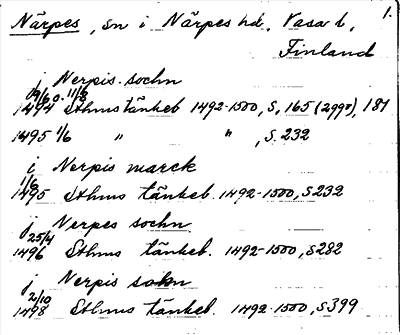 1.
Närpes, sn i Närpes hd, Vasa l,
Finland
j Nerpis sochn
19/6 o. 11/8
1494 Sthms tänkeb 1492-1500, S, 165 (299), 181
1495 1/6 " " , S. 232
i Nerpis marck
11/6
1495 Sthms tänkeb. 1492-1500, S 232
j Nerpes sochn
25/4
1496 Sthms tänkeb. 1492-1500, S 282
j Nerpis sokn
2/10
1498 Sthms tänkeb. 1492-1500, S 399